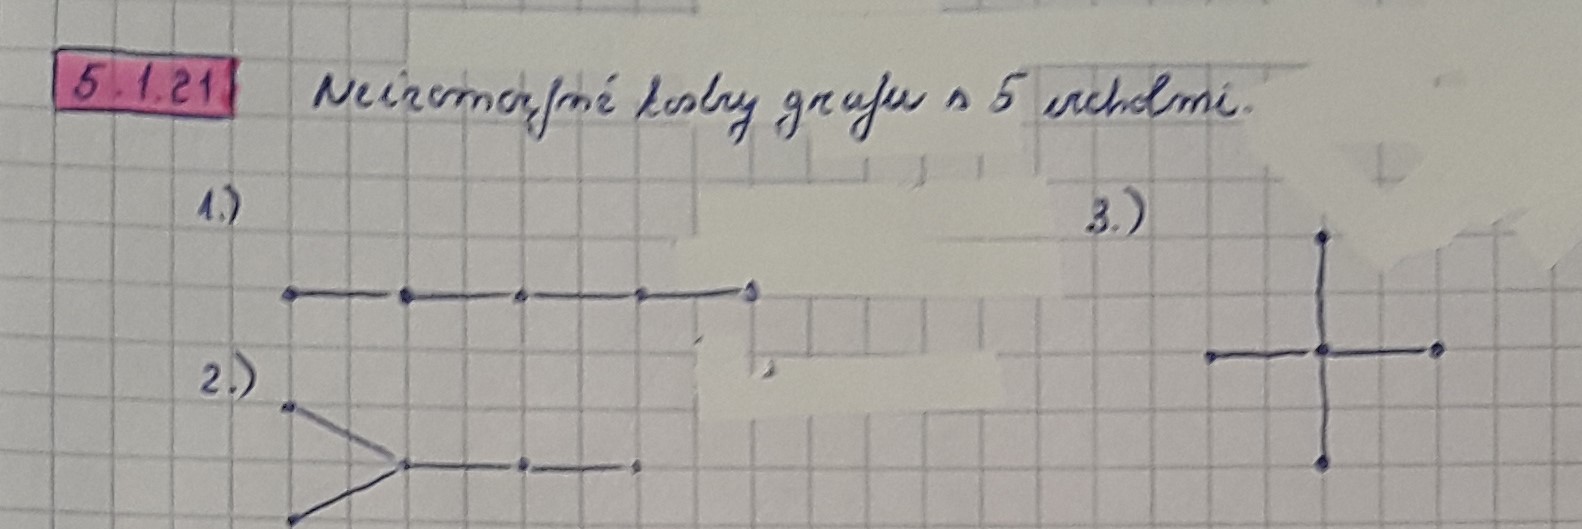 5.1.21 Neizomorfné kostry grafu s 5 vrcholmi.
1.)
3.)
2.)